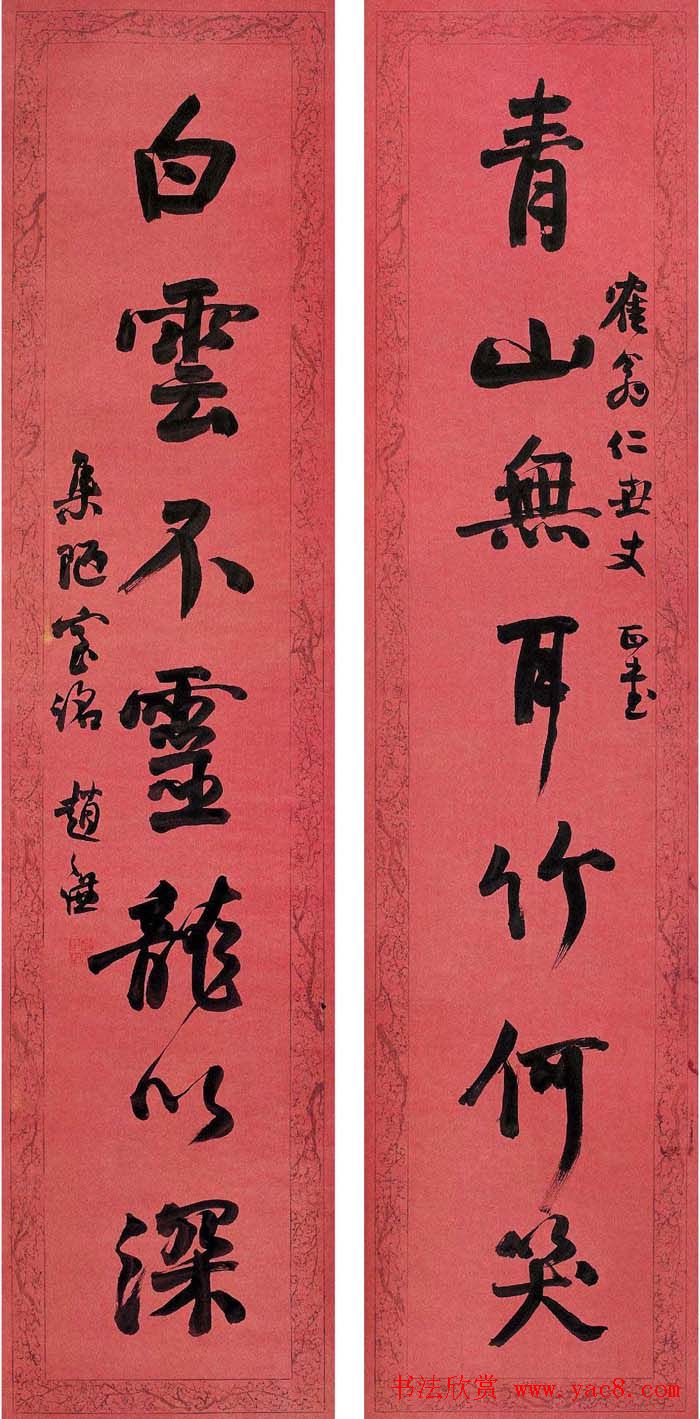 青山無耳竹何笑
隺翁仁世丈 正
白雲不靈龍以深
集陋室銘 趙熙
书法欣赏 www.yac8.com